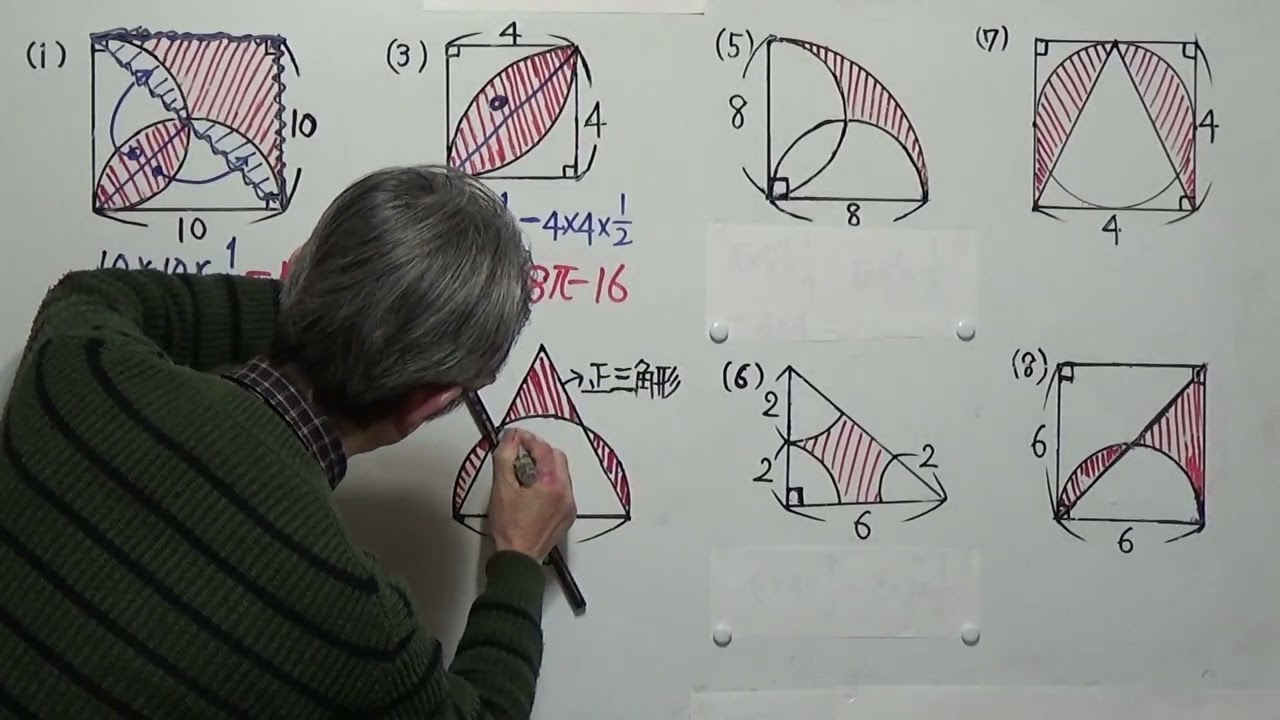 (1)
10
10
10×10×1
(3)
4
4
1/2
-4×4×
8π-16
正三角形
(5)
8
8
(6)
2
2
2
6
(7)
4
4
(8)
6
6